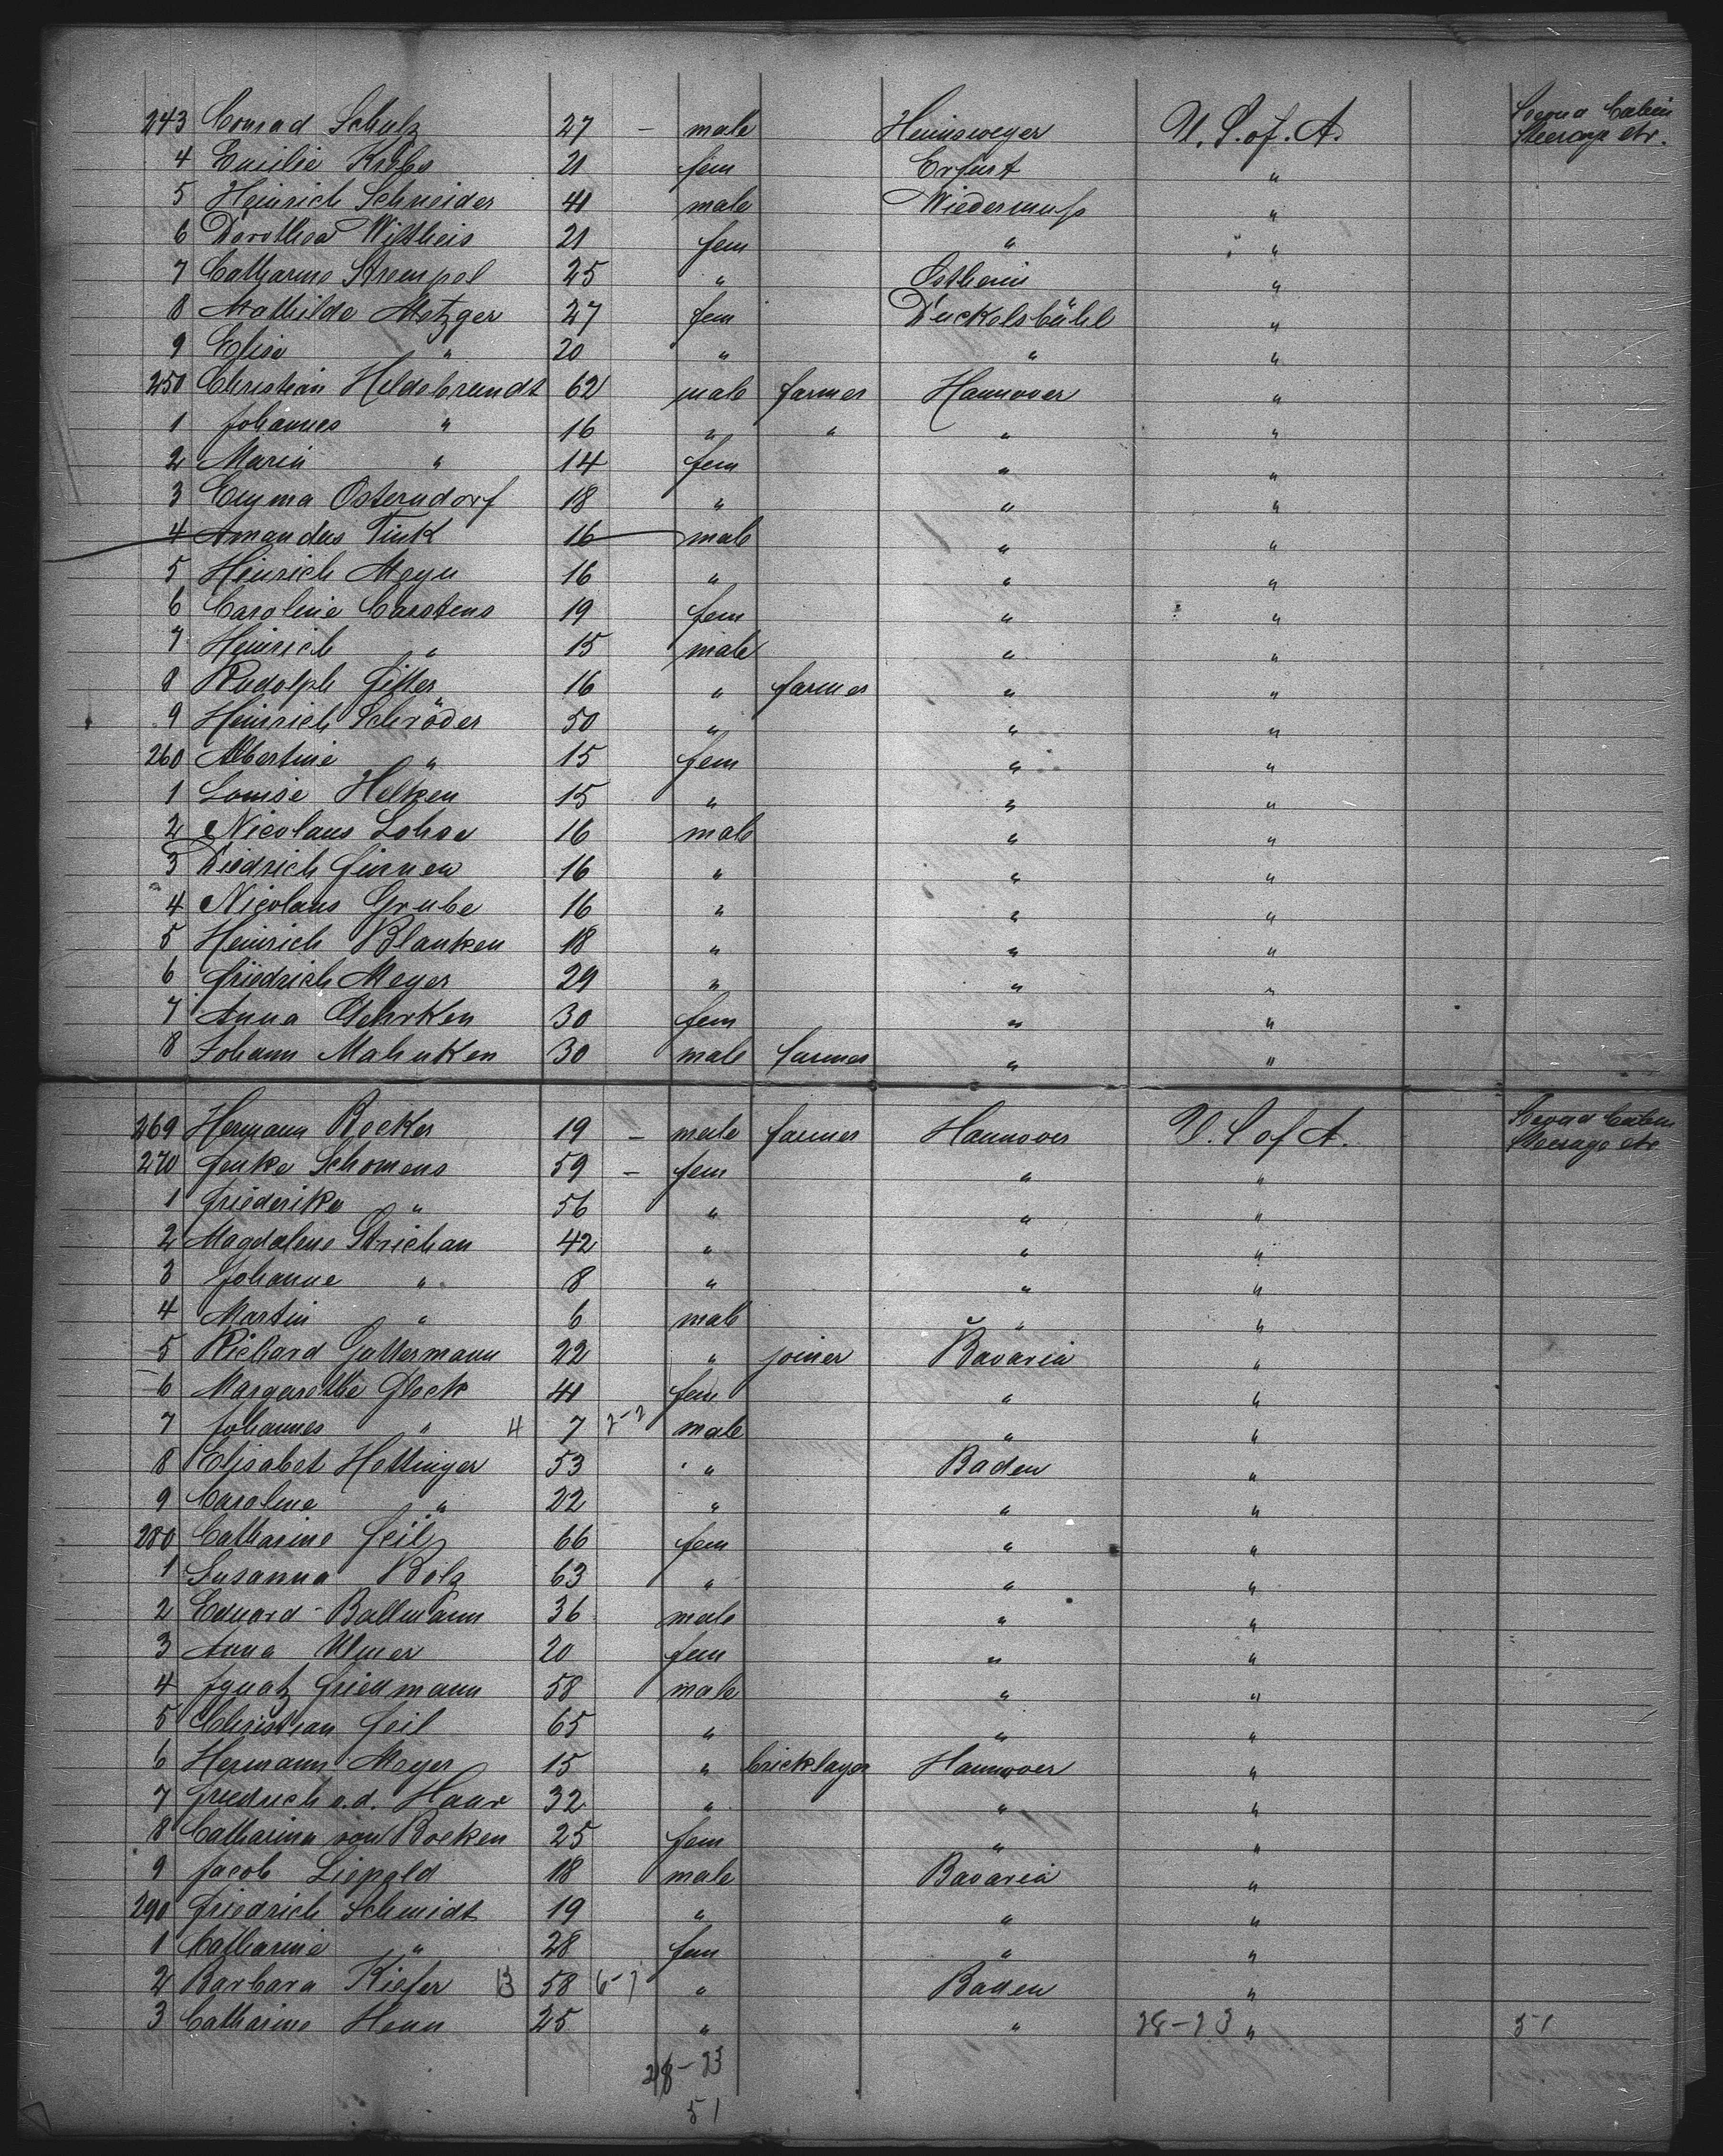 243 Conrad Schulz 27 – male Heinsweger U. S. of. A. Second Cabin
Steerage etc.
4 Emilie Krebs 21 fem Erfurt "
5 Heinrich Schneider 41 male "
6 Dorothea Wittheis 21 fem " "
7 Catharine Strempel 25 " Ostheim "
8 Mathilde Metzger 27 fem Dückelsbühl "
9 Elise " 20 " " "
250 Christian Hildebrandt 62 male farmer Hannover "
1 Johannes " 16 " " " "
2 Maria " 14 fem " "
3 Emma Osterndorf 18 " " "
4 Amandus Tink 16 male " "
5 Hinrich Meyn 16 " " "
6 Caroline Carstens 19 fem " "
7 Heinrich " 15 male " "
8 Rudolph 16 " farmer " "
9 Heinrich Schröder 50 " " "
260 Albertine " 15 fem " "
1 Louise Helken 15 " " "
2 Nicolaus Lohse 16 male " "
3 Diedrich 16 " " "
4 Nicolaus Grube 16 " " "
5 Heinrich Blanken 18 " " "
6 Friedrich Meyer 29 " " "
7 Anna Gehrken 30 fem " "
8 Johann Mahnken 30 male farmer " "
269 Hermann Becker 19 – male farmer Hannover U. S of A. Second Cabin
Steerage etc
270 Schomens 59 – fem " "
1 Friederike " 56 " " "
2 Magdalene Strichan 42 " " "
3 Johanne " 8 " " "
4 Martin " 6 male " "
5 Richard Gattermann 22 " joiner Bavaria "
6 Margarethe Glock 41 fem " "
7 Johannes " 4 7 male " "
8 Elisabet Hettinger 53 " Baden "
9 Caroline " 22 " " "
280 Catharine Feil 66 fem " "
1 Susanna Bolz 63 " " "
2 Eduard Ballmann 36 male " "
3 Anna Ulmer 20 fem " "
4 Ignatz Friedmann 58 male " "
5 Christian Feil 65 " " "
6 Hermann Meyer 15 " bricklayer Hannover "
7 Friedrich v. d. Haar 32 " " "
8 Catharina von Bocken 25 fem " "
9 Jacob Liepold 18 male Bavaria "
290 Friedrich Schmidt 19 " " "
1 Catharine " 28 fem " "
2 Barbara Kiefer 13 58 6-7 " Baden "
3 Catharine Henn 25 " " 28-23 " 51
28-23
51